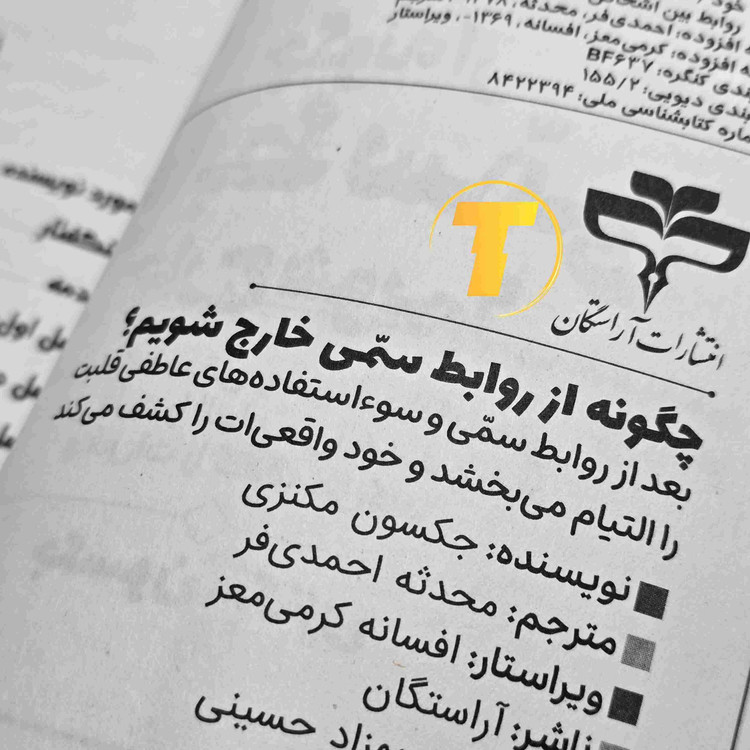 روابط بین اشخاص
افزوده: احمدی‌فر، محدثه،
ه افزوده: کرمی‌معز، افسانه، ۱۳۶۹-، ویراستار
بندی کنگره: BF۶۳۷
بندی دیویی: ۱۵۵/۲
ماره کتابشناسی ملی: ۸۴۲۲۳۹۴
T
انتشارات آراستگان
چگونه از روابط سمّی خارج شویم؛
بعد از روابط سمّی و سوءاستفاده‌های عاطفی قلبت
را التیام می‌بخشد و خود واقعی‌ات را کشف می‌کند
نویسنده: جکسون مکنزی
مترجم: محدثه احمدی‌فر
ویراستار: افسانه کرمی‌معز
ناشر: آراستگان
حسینی
مورد نویسنده
ل اول